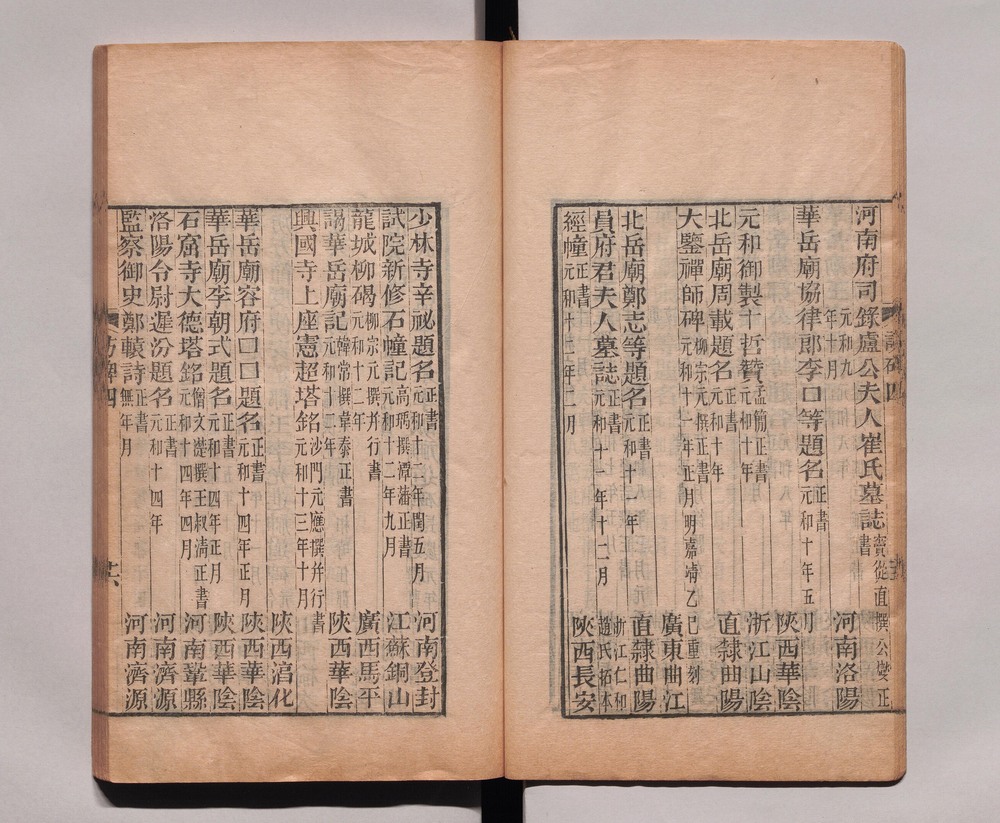 河南府司錄盧公夫人崔氏墓誌竇從直撰公燮正書
元和九年十月河南洛陽
華岳廟協律郎李口等題名正書元和十年五月陝西華陰
元和御製十哲贊孟簡正書元和十年浙江山陰
北岳廟周載題名正書元和十年直隸曲陽
大鑒禪師碑柳宗元撰正書元和十一年正月明嘉靖乙巳重刻廣東曲江
北岳廟鄭志等題名正書元和十一年直隸曲陽
員府君夫人墓誌正書元和十二年十二月浙江仁和趙氏拓本
經幢正書元和十二年二月陝西長安
少林寺辛祕題名正書元和十二年閏五月河南登封
試院新修石幢記高瑀撰譚藩正書元和十二年九月江蘇銅山
龍城柳碣柳宗元撰并行書元和十二年廣西馬平
謁華岳廟記韓常撰韋泰正書元和十三年陝西華陰
興國寺上座憲超塔銘沙門元應撰并行書元和十三年十月陝西淳化
華岳廟容府口口題名正書元和十四年正月陝西華陰
華岳廟李朝式題名正書元和十四年正月陝西華陰
石窟寺大德塔銘僧文湜撰王叔清正書元和十四年四月河南鞏縣
洛陽令尉遲汾題名正書元和十四年河南濟源
監察御史鄭轅詩正書無年月河南濟源
訪碑四